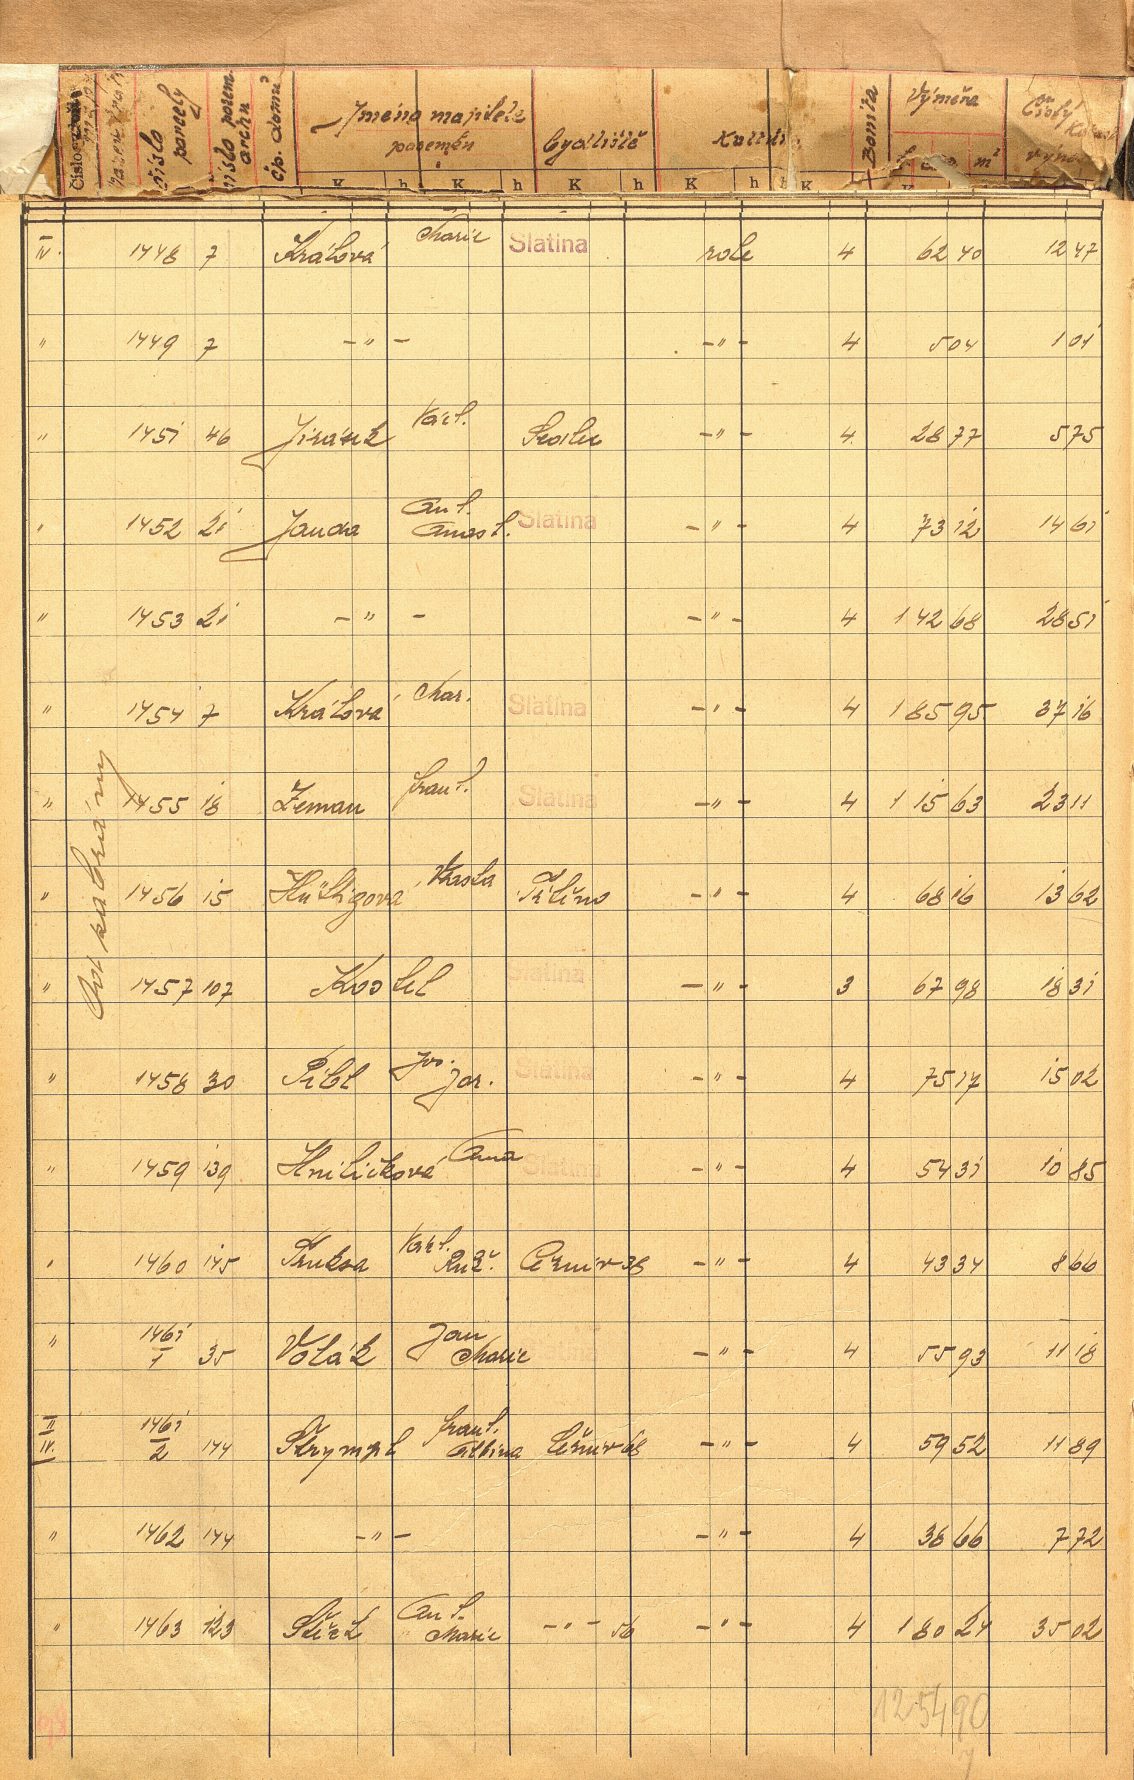 číslo parcely
číslo pozem. archu
čp. domu
Jméno majitele
pozemku
Bydliště
Bonita
Výměra
Čistý
m²
K h K h K h K h K
IV. 1448 7 Králová Marie Slatina role 4 62 40 12 47
" 1449 7 -"- -"- 4 5 04 1 01
" 1451 46 Jirásek Karel -"- 4 28 77 5 75
" 1452 21 Janda Ant. Anast. Slatina -"- 4 73 12 14 61
" 1453 21 -"- -"- 4 1 42 68 28 51
" 1454 7 Králová Mar. Slatina -"- 4 1 85 95 37 16
" 1455 18 Zeman Frant. Slatina -"- 4 1 15 63 23 11
" 1456 15 Hüttigová Vlasta -"- 4 68 16 13 62
" 1457 107 Kostel Slatina -"- 3 67 98 18 31
" 1458 30 Jos. Jar. Slatina -"- 4 75 17 15 02
" 1459 139 Hniličková Anna Slatina -"- 4 54 31 10 85
" 1460 145 Karel Růž. 38 -"- 4 43 34 8 66
" 1461/1 35 Volák Jan Marie -"- 4 55 93 11 18
II IV. 1461/2 144 Frant. Albina 68 -"- 4 59 52 11 89
" 1462 144 -"- -"- 4 38 66 7 72
" 1463 123 Ant. Marie -"- 56 -"- 4 1 80 24 35 02
125490